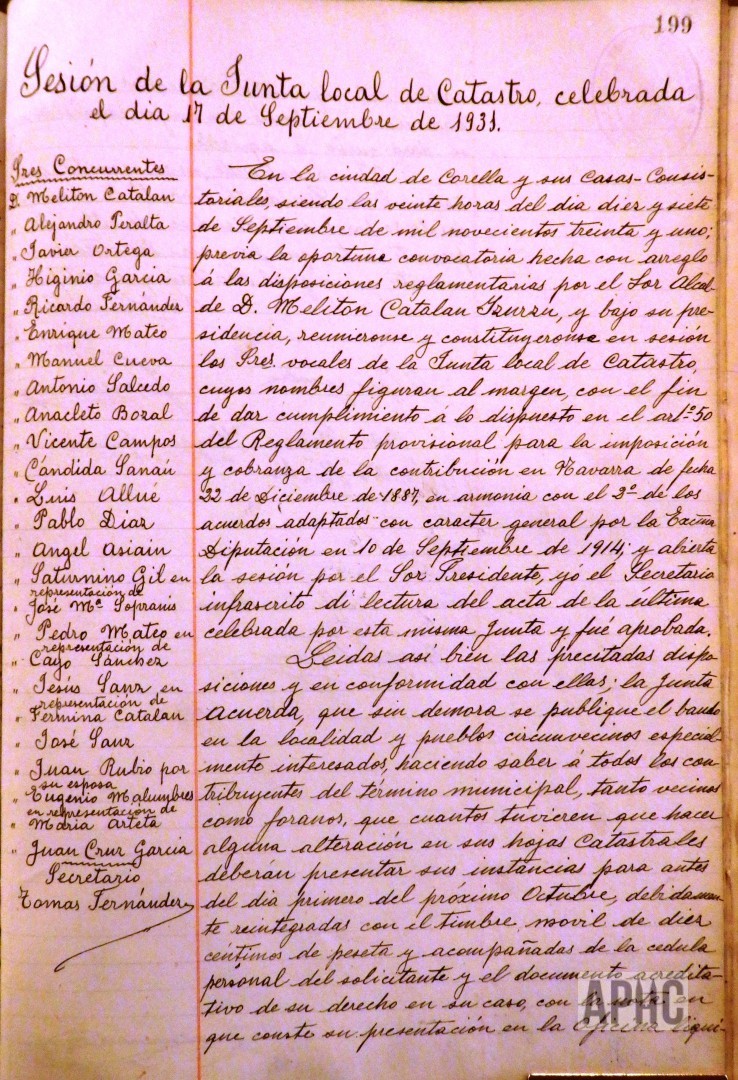 199
Sesión de la Junta local de Catastro, celebrada
el dia 17 de Septiembre de 1931.
Sres Concurrentes
D. Meliton Catalan
" Alejandro Peralta
" Javier Ortega
" Higinio Garcia
" Ricardo Fernández
" Enrique Mateo
" Manuel Cueva
" Antonio Salcedo
" Anacleto Bozal
" Vicente Campos
" Cándida Sanaú
" Luis Allué
" Pablo Diaz
" Angel Asiain
" Saturnino Gil en
representación de
" José Mª Sopranis
" Pedro Mateo en
representación de
" Cayo Sánchez
" Jesús Sanz en
representación de
" Fermina Catalan
" José Sanz
" Juan Rubio por
su esposa
" Eugenio Malumbres
en representación de
" Maria Arteta
" Juan Cruz Garcia
Secretario
Tomas Fernández
En la ciudad de Corella y sus Casas-Consis-
toriales, siendo las veinte horas del dia diez y siete
de Septiembre de mil novecientos treinta y uno;
previa la oportuna convocatoria hecha con arreglo
á las disposiciones reglamentarias por el Sor Alcal-
de D. Meliton Catalan Yzurzu, y bajo su pre-
sidencia, reunieronse y constituyeronse en sesión
los Sres. vocales de la Junta local de Catastro,
cuyos nombres figuran al margen, con el fin
de dar cumplimiento á lo dispuesto en el artº 50
del Reglamento provisional para la imposición
y cobranza de la contribución en Navarra de fecha
22 de Diciembre de 1887, en armonia con el 2º de los
acuerdos adaptados con caracter general por la Excma
Diputación en 10 de Septiembre de 1914; y abierta
la sesión por el Sor Presidente, yó el Secretario
infrascrito di lectura del acta de la última
celebrada por esta misma Junta y fué aprobada.
Leidas asi bien las precitadas dispo-
siciones y en conformidad con ellas; la Junta
Acuerda, que sin demora se publique el bando
en la localidad y pueblos circunvecinos especial-
mente interesados, haciendo saber á todos los con-
tribuyentes del término municipal, tanto vecinos
como foranos, que cuantos tuvieren que hacer
alguna alteración en sus hojas catastrales
deberán presentar sus instancias para antes
del dia primero del próximo Octubre, debidamen-
te reintegradas con el timbre movil de diez
céntimos de peseta y acompañadas de la cedula
personal del solicitante y el documento acredita-
tivo de su derecho en su caso, con la nota en
que conste su presentación en la Oficina liqui-
APHC